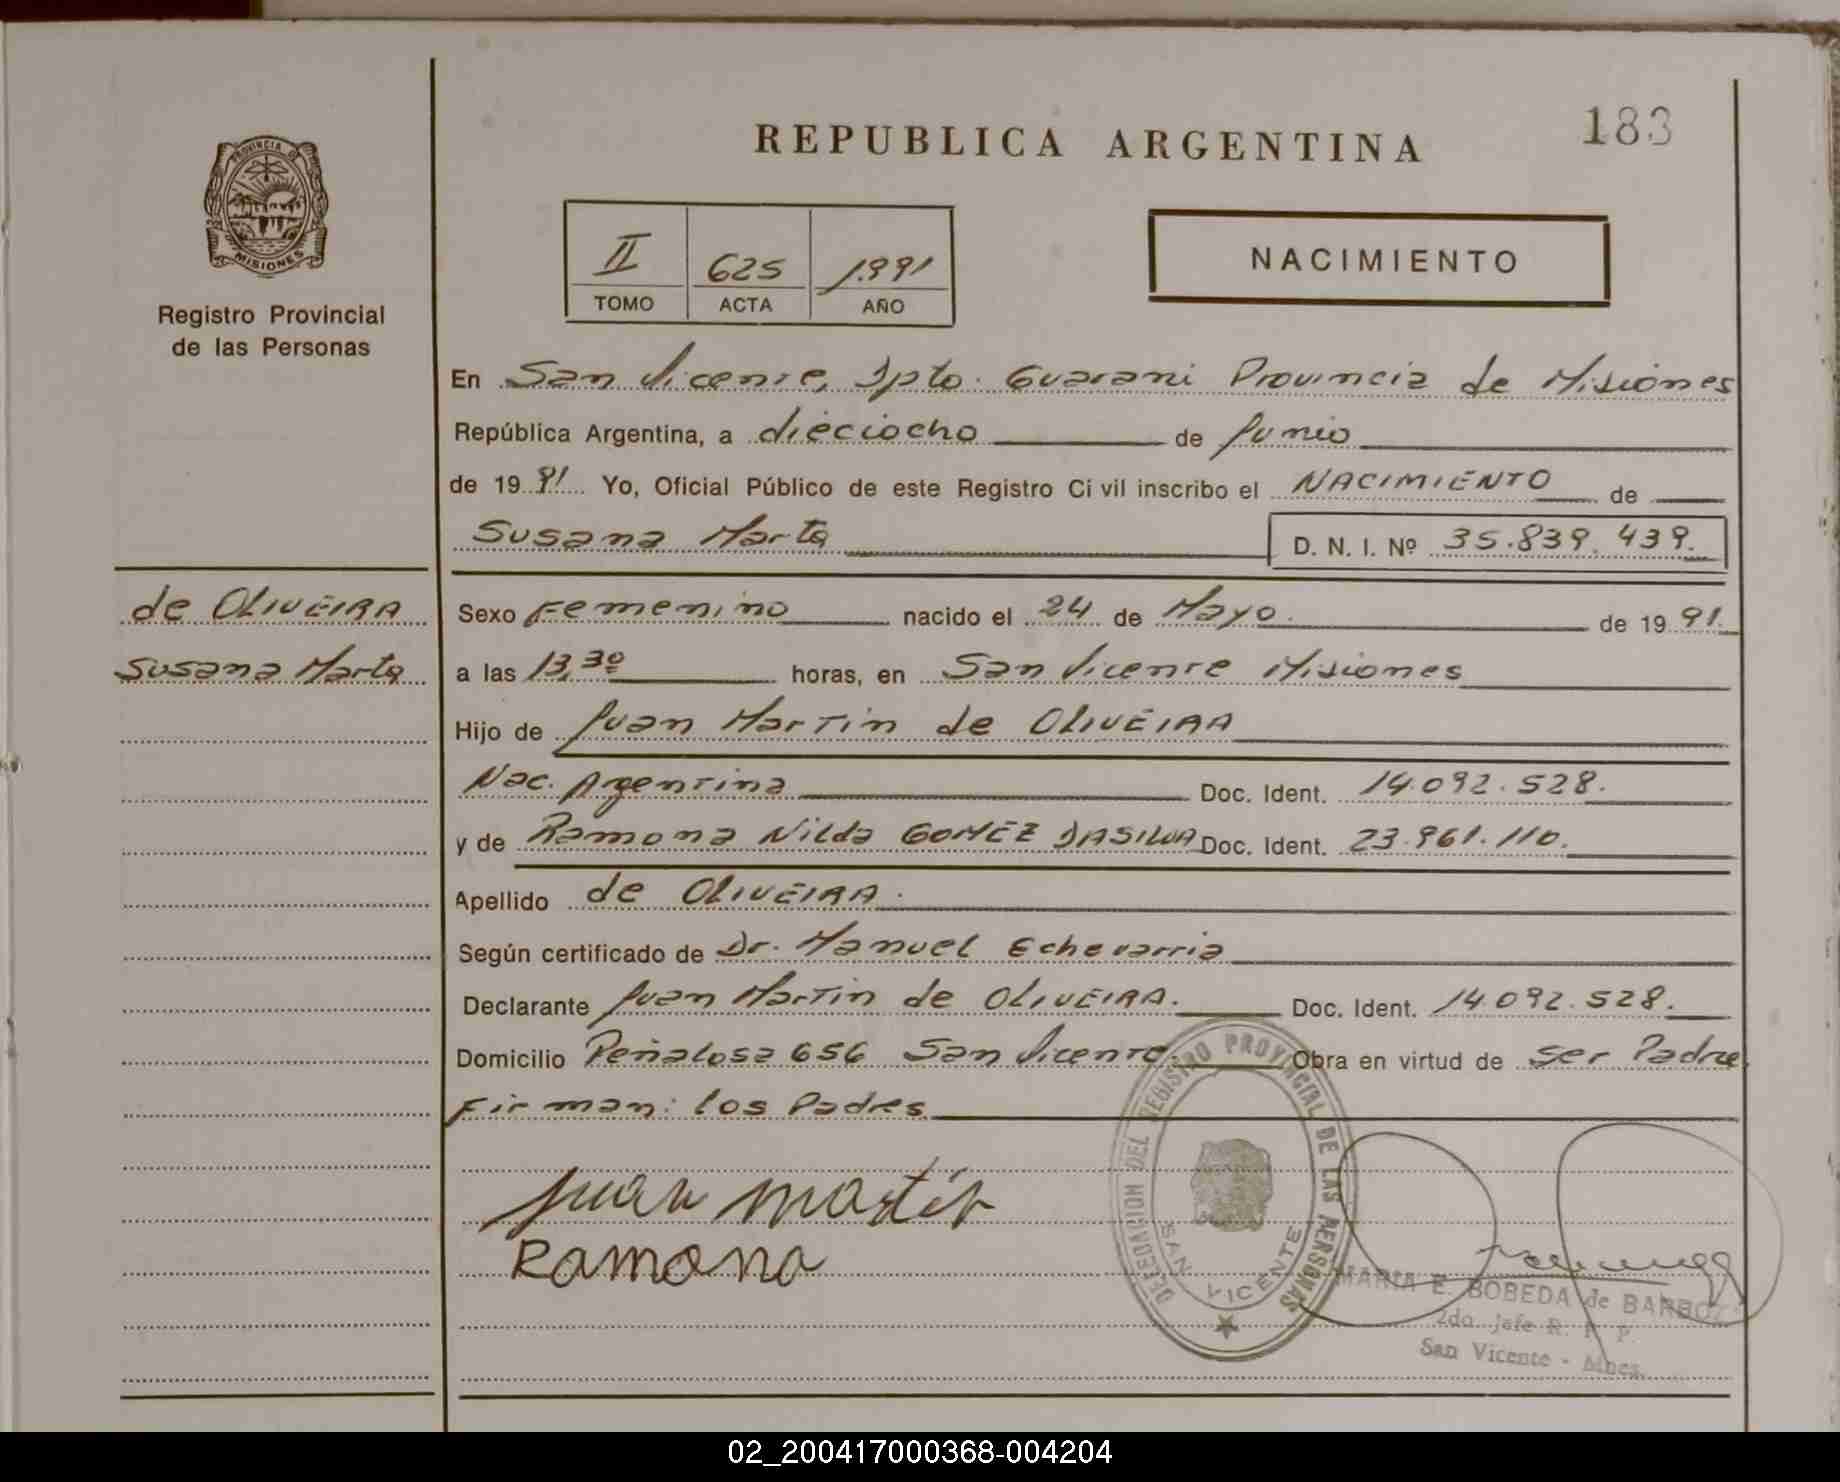 183
REPUBLICA ARGENTINA
PROVINCIA DE
MISIONES
Registro Provincial
de las Personas
II 625 1.991
TOMO ACTA AÑO
NACIMIENTO
En San Vicente, Dpto. Guarani Provincia de Misiones
República Argentina, a dieciocho de Junio
de 19 91 Yo, Oficial Público de este Registro Civil inscribo el NACIMIENTO de
Susana Marta D. N. I. Nº 35.839.439.
de OLIVEIRA
Susana Marta
Sexo Femenino nacido el 24 de Mayo. de 19 91.
a las 13,30 horas, en San Vicente Misiones
Hijo de Juan Martin de OLIVEIRA
Nac. Argentina Doc. Ident. 14.092.528.
y de Ramona Nilda GOMEZ DASILVA Doc. Ident. 23.961.110.
Apellido de OLIVEIRA.
Según certificado de Dr. Manuel Echevarria
Declarante Juan Martin de OLIVEIRA. Doc. Ident. 14.092.528.
Domicilio Peñalosa 656 San Vicente. Obra en virtud de ser Padre.
Firman: los Padres
Juan Martin
Ramona
DELEGACION DEL REGISTRO PROVINCIAL DE LAS PERSONAS
SAN VICENTE
MARIA E. BOBEDA de BARBOZA
2do. Jefe R. P. P.
San Vicente - Mnes.
02_200417000368-004204